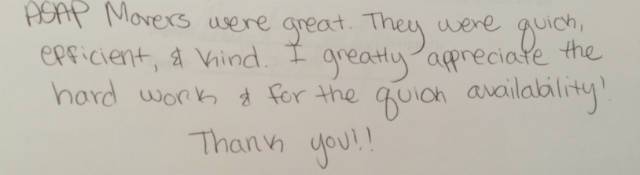 ASAP Movers were great. They were quick,
efficient, & kind. I greatly appreciate the
hard work & for the quick availability!
Thank you!!